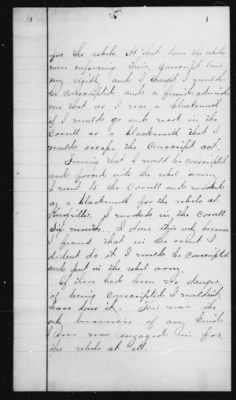 1 1
for the rebels. At that time the rebels
were enforcing their conscript law
very rigidly, and I thought I would
be conscripted and a friend advised
me that as I was a blacksmith
if I would go and work in the
Corrall as a blacksmith that I
would escape the Conscript act.
Fearing that I would be conscripted
and forced into the rebel army
I went to the Corrall and worked
as a blacksmith for the rebels at
I worked in the Corrall
Six months. I done this only because
I feared that in the event I
dident do it I would be Conscripted
and put in the rebel army.
If there had been no danger
of being Conscripted I wouldent
have done it. This was the
only business of any kind
I ever was engaged in for
the rebels at all.